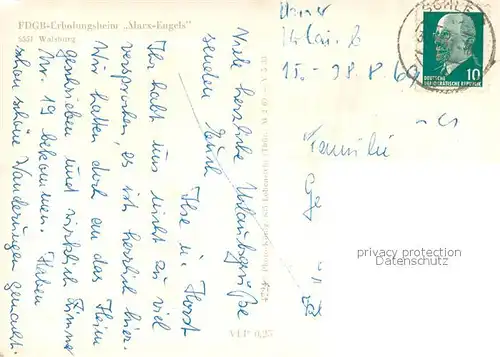 FDGB-Erholungsheim „Marx-Engels"
5531 Walsburg
Viele herzliche Urlaubsgrüße
senden Euch
Ilse u. Horst
Ihr habt uns nicht zu viel
versprochen, es ist herrlich hier.
Wir hatten doch an das Heim
geschrieben und wirklich Zimmer
Nr. 19 bekommen. Haben
schon schöne Wanderungen gemacht.
VEP 0,25
15.-28.8.69
DEUTSCHE
DEMOKRATISCHE REPUBLIK
10
Familie
privacy protection
Datenschutz